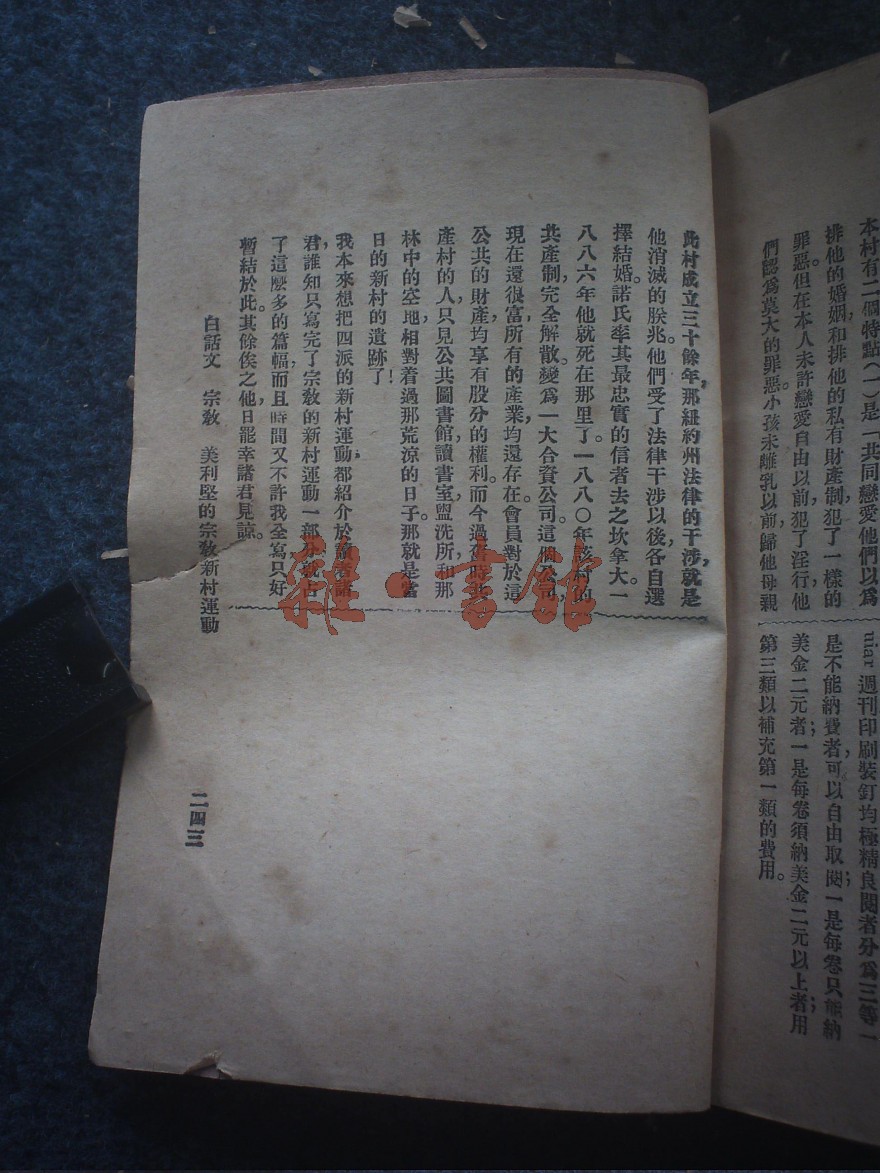 本村有二個特點，（一）是「共同戀愛」他們以爲
排他的婚姻，和排他的私有財產制，犯了一樣的
罪惡。但在本人未許戀愛自由以前，犯了淫行，他
們認爲莫大的罪惡。小孩未離乳以前，歸他母親
niar 週刊印刷裝釘均極精良，閱者分爲三等；一
是不能納費者，可以自由取閱；一是每卷只能納
美金二元者；一是每卷須納美金二元以上者；用
第三類以補充第一類的費用。
此村成立三十餘年，那紐約州法律的干涉，就是
他消滅的朕兆。他們受了法律干涉以後，各自選
擇結婚。諾氏率其最忠實的信者去之坎拿大。一
八八六年他就死在那里了。一八八〇年該村的
共產制完全解散，變爲一大合資公司。這個公司，
現在還很富，所有的產業均還存在。會員對於這
公共的財產，均享有股分的權利。而今過舊時共
產村的人，只見公共圖書館，讀書室，盥洗所，和那
林中的空地，相對着過那荒涼的日子。那就是當
日的新村的遺跡了！
我本來想把四派的新村運動，都紹介於讀者諸
君，誰知只寫完了宗教的新村運動一部分，就占
了這麽多的篇幅，而且時間又不許我全寫，只好
暫結於此。其餘俟之他日罷，幸諸君見諒。
白話文　宗教　美利堅的宗教新村運動
二四三
雜·書館